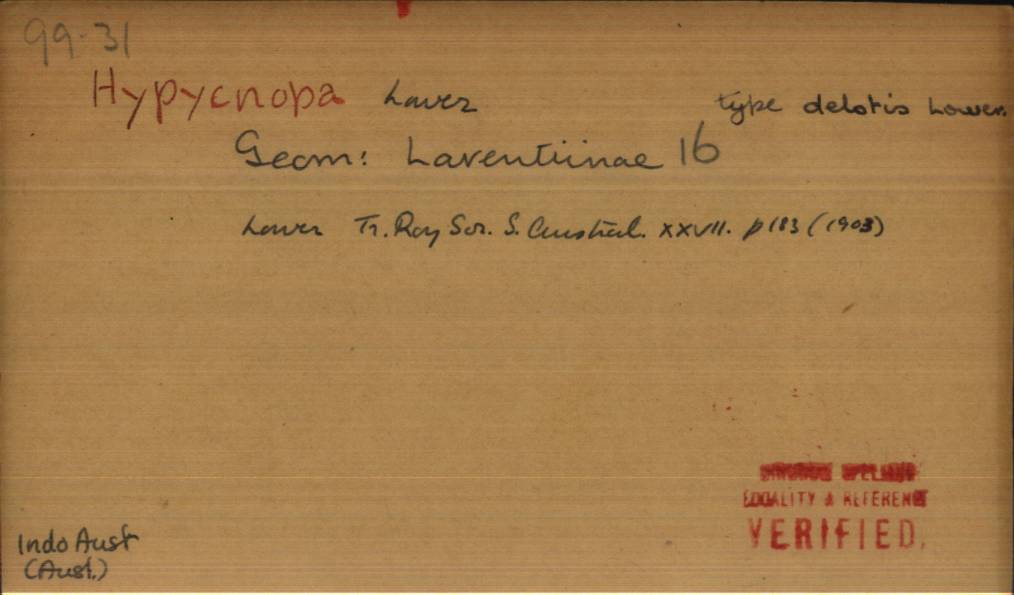 99-31
Hypycnopa Lower type delotis Lower
Geom: Larentiinae 16
Lower Tr. Roy Soc. S. Austral. XXVII. p 183 (1903)
LOCALITY & REFERENCE
VERIFIED.
Indo Aust
(Aust.)